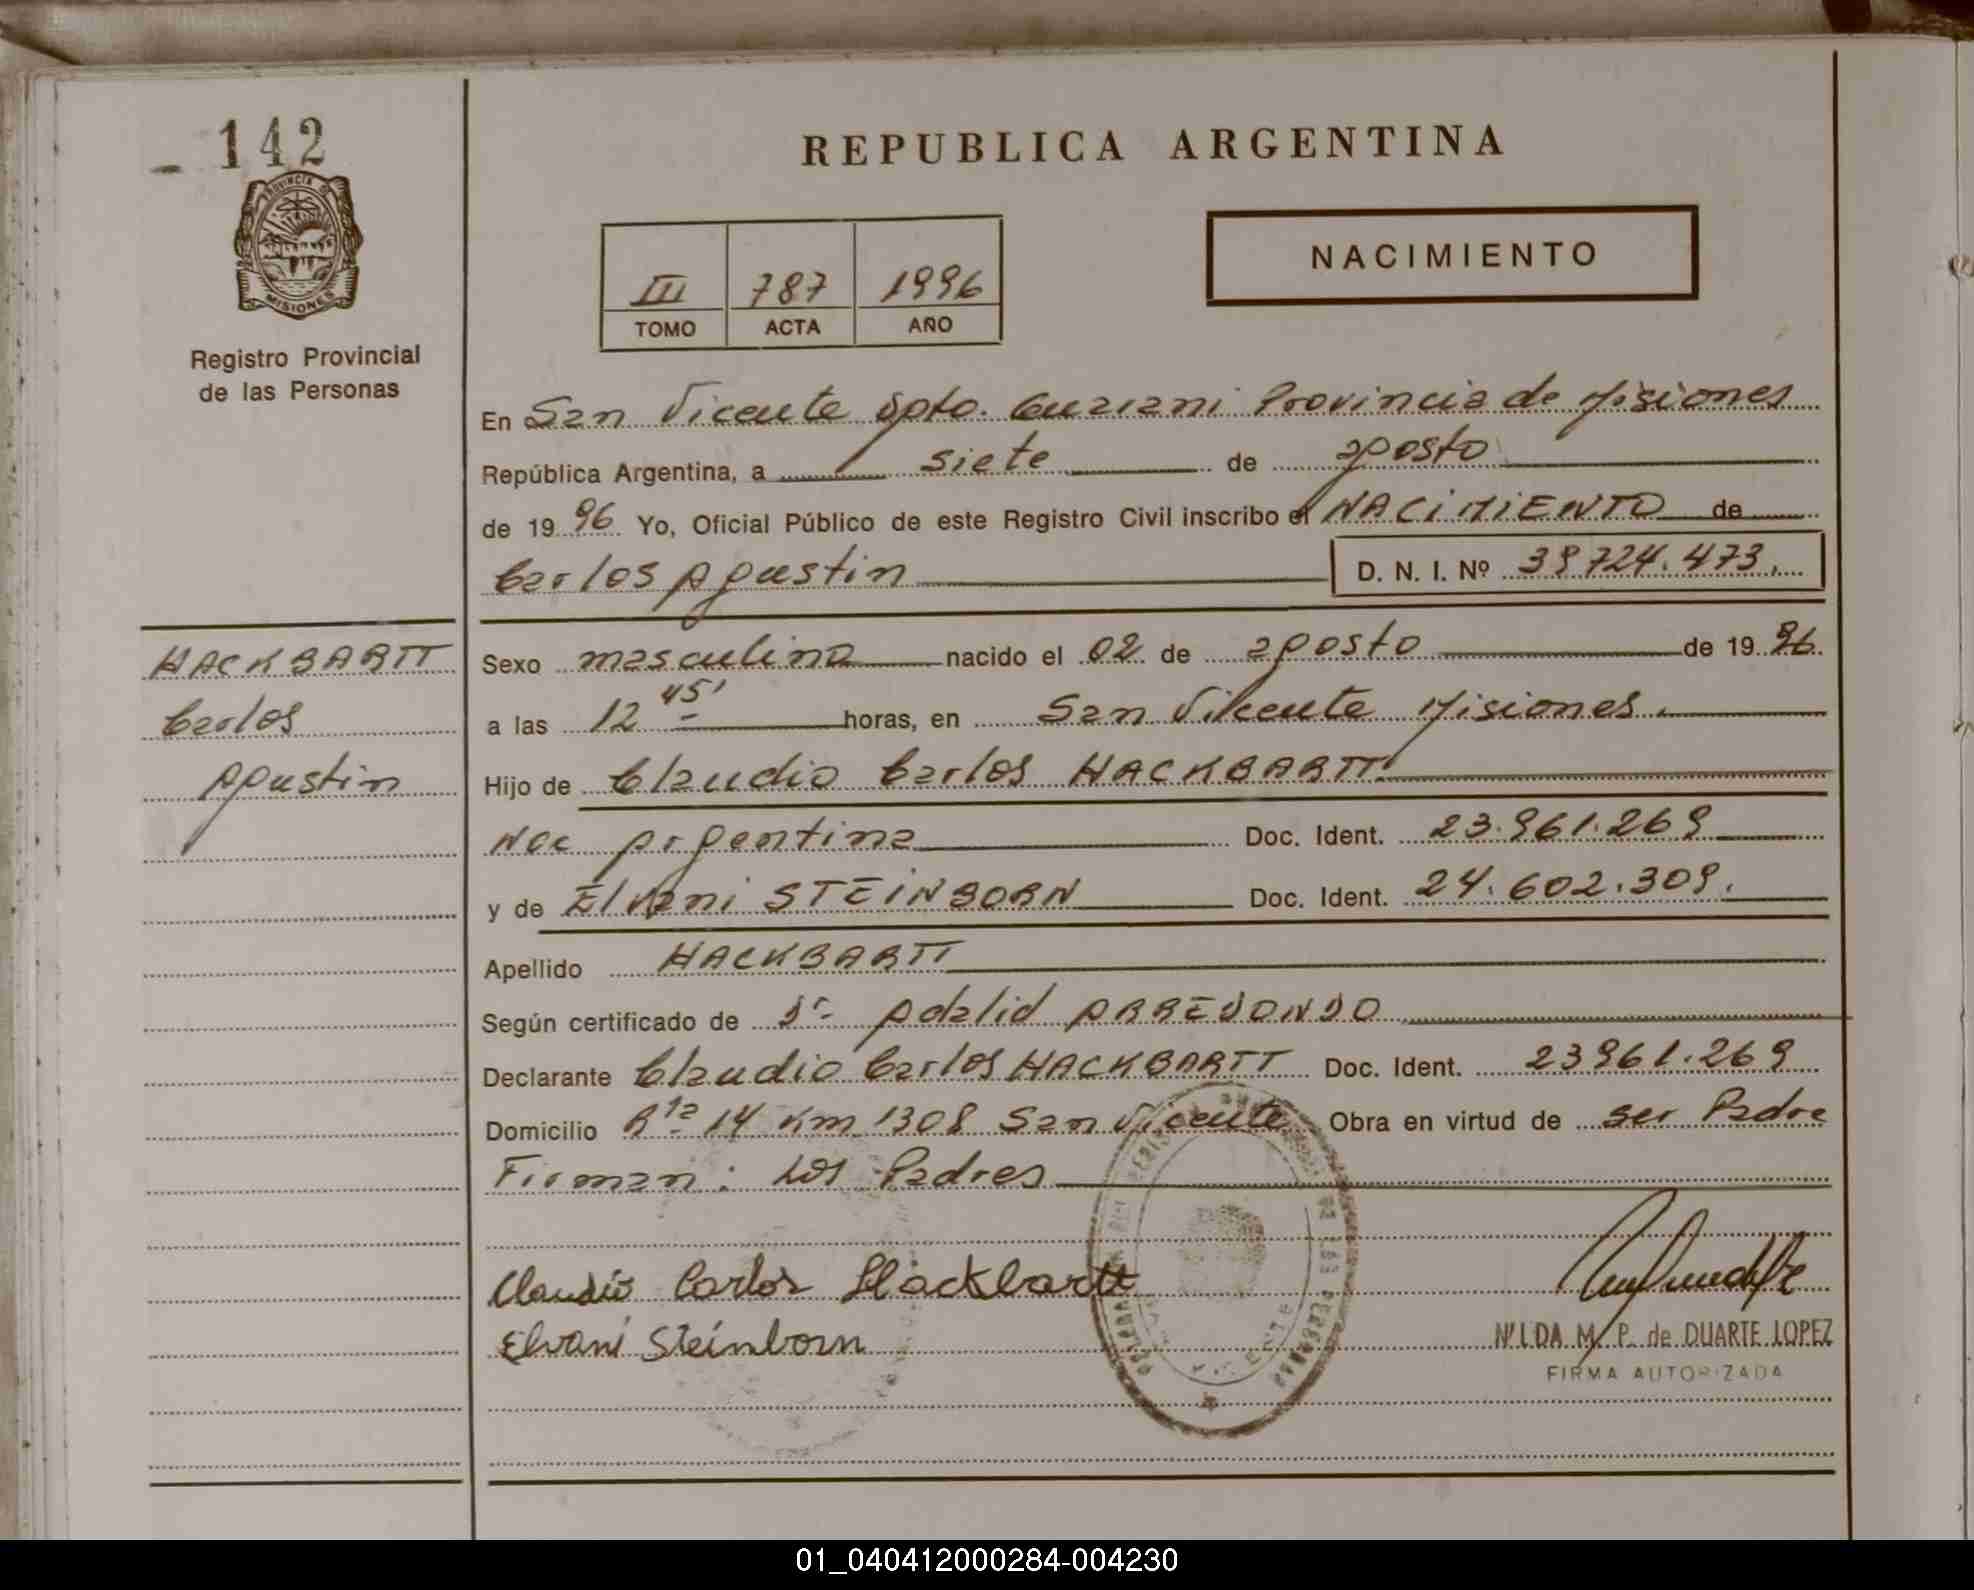 142
PROVINCIA DE
MISIONES
Registro Provincial
de las Personas
HACKBARTT
Carlos
Agustin
REPUBLICA ARGENTINA
III 787 1996
TOMO ACTA AÑO
NACIMIENTO
En San Vicente Dpto. Guarani Provincia de Misiones
República Argentina, a siete de agosto
de 1996 Yo, Oficial Público de este Registro Civil inscribo el NACIMIENTO de
Carlos Agustin D. N. I. Nº 39.724.473.
Sexo masculino nacido el 02 de agosto de 1996.
a las 12 45' horas, en San Vicente Misiones.
Hijo de Claudio Carlos HACKBARTT
Nac Argentina Doc. Ident. 23.961.269
y de Elvani STEINBORN Doc. Ident. 24.602.309.
Apellido HACKBARTT
Según certificado de Dr- Adalid ARREDONDO
Declarante Claudio Carlos HACKBARTT Doc. Ident. 23961.269
Domicilio Rta 14 Km 1308 San Vicente Obra en virtud de ser Padre
Firman: Los Padres
Claudio Carlos Hackbartt
Elvani Steinborn
NILDA M. P. de DUARTE LOPEZ
FIRMA AUTORIZADA
01_040412000284-004230